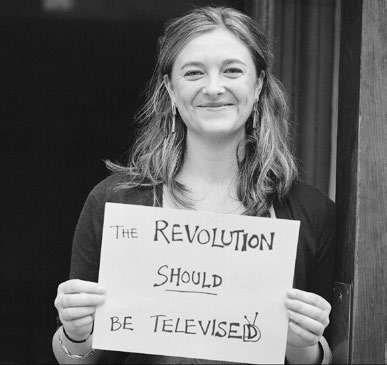 THE REVOLUTION
SHOULD
BE TELEVISED